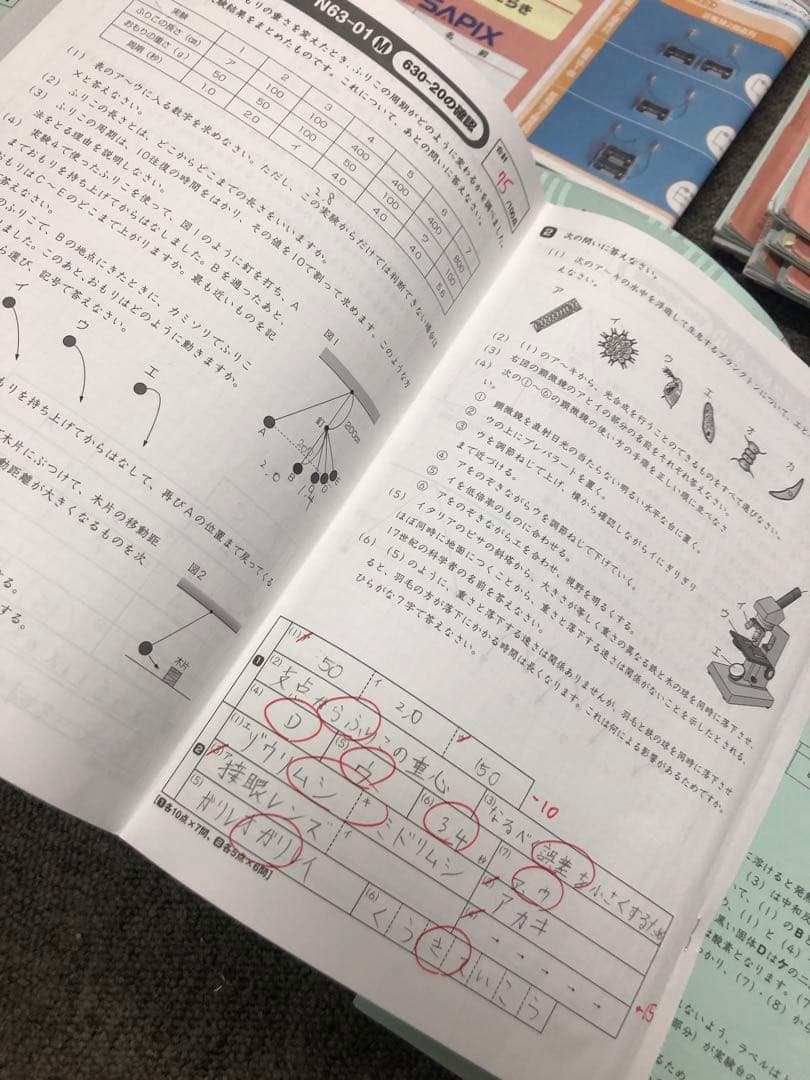 N63-01 M
630-20の確認
もりの重さを変えたとき、ふりこの周期がどのように変わるかを調べました。
験結果をまとめたものです。これについて、あとの問いに答えなさい。
合計
75
/100点
実験 1 2 3 4 5 6 7
ふりこの長さ(cm) ア 100 100 400 400 400 800
おもりの重さ(g) 50 50 100 50 100 ウ 100
周期(秒) 1.0 2.0 イ 4.0 4.0 4.0 5.6
(1) 表のア〜ウに入る数字を求めなさい。ただし、この実験からだけでは判断できない場合は
×と答えなさい。
2.8
(2) ふりこの長さとは、どこからどこまでの長さをいいますか。
(3) ふりこの周期は、10往復の時間をはかり、その値を10で割って求めます。このような方
法をとる理由を説明しなさい。
(4) 実験4で使ったふりこを使って、図1のように釘を打ち、A
までおもりを持ち上げてからはなしました。Bを通ったあと、
おもりはC〜Eのどこまで上がりますか。最も近いものを記
答えなさい。
のふりこで、Bの地点にきたときに、カミソリでふりこ
ました。このあと、おもりはどのように動きますか。
ら選び、記号で答えなさい。
イ
ウ
エ
図1
釘
200cm
A
B
C
D
E
2.0
1.4
もりを持ち上げてからはなして、再びAの位置まで戻ってくる
木片にぶつけて、木片の移動距
動距離が大きくなるものを次
図2
木片
する。
する。
2 次の問いに答えなさい。
(1) 次のア〜キの水中を浮遊して生活するプランクトンについて、エと
えなさい。
ア
イ
ウ
エ
オ
カ
(2) (1)のア〜キから、光合成を行うことのできるものをすべて選びなさい。
(3) 右図の顕微鏡のアとイの部分の名前をそれぞれ答えなさい。
(4) 次の①〜⑥の顕微鏡の使い方の手順を正しい順に並べなさ
い。
① 顕微鏡を直射日光の当たらない明るい水平な台に置く。
② ウの上にプレパラートを置く。
③ ウを調節ねじで上げ、横から確認しながらイにぎりぎり
まで近づける。
④ アをのぞきながらウを調節ねじで下げていく。
⑤ イを低倍率のものに合わせる。
⑥ アをのぞきながらエを合わせ、視野を明るくする。
(5) イタリアのピサの斜塔から、大きさが等しく重さの異なる鉄と木の球を同時に落下させ、
ほぼ同時に地面につくことから、重さと落下する速さは関係がないことを示したとされる、
17世紀の科学者の名前を答えなさい。
(6) (5)のように、重さと落下する速さは関係ありませんが、羽毛と鉄の球を同時に落下させ
ると、羽毛の方が落下にかかる時間は長くなります。これは何による影響があるためですか。
ひらがな7字で答えなさい。
イ
ウ
エ
1
(1) 50
イ 2.0
150
(2) 支点からふりこの重心
(3) なるべく誤差を小さくするため
-10
(4) D
(5) ウ
(6) 3,4
(7) ア,ウ
2
(1)エ ゾウリムシ
キ ミドリムシ
アカキ
(3)ア 接眼レンズ
イ
→ → → → →
(5) ガリレオガリレイ
(6) くうきていこう
-15
[1各10点×7問、2各5点×6問]
SAPIX
名前
に溶けると発熱
(3)は中和反
いて、(1)のB
め、(1)と(4)
黒い固体Dはケの
は酸素となります。(7
かり、(7)・(8)か
れないよう、ラベルは
部分)が実験台の
げるため